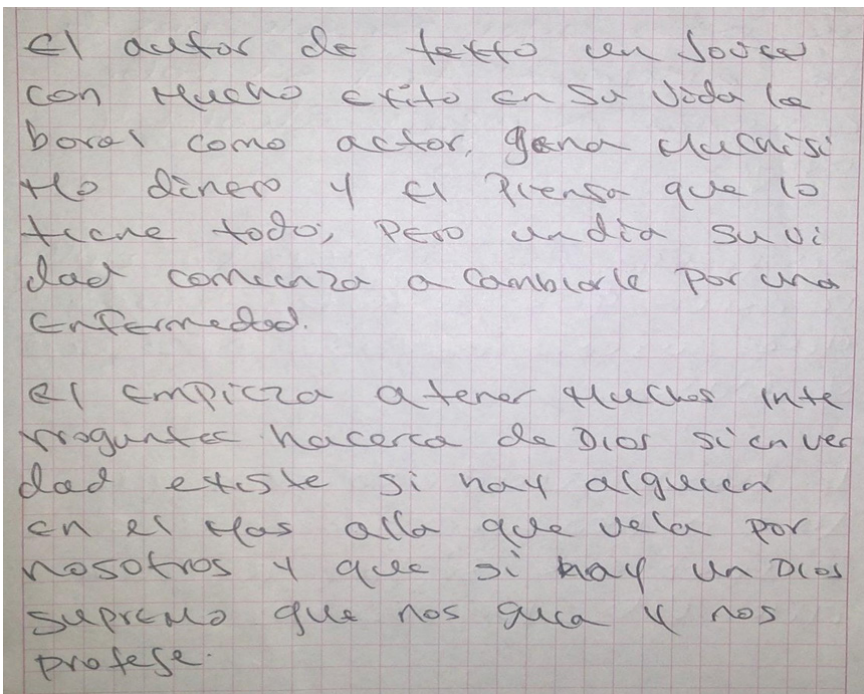 El autor de texto un Joven
con mucho exito en su vida la
boral como actor, gana muchisi
mo dinero y el Piensa que lo
tiene todo, Pero un dia su vi
dad comienza a cambiarle Por una
Enfermedad.
El Empieza a tener muchas inte
rrogantes hacerca de Dios si en ver
dad existe si hay alguien
en el mas alla que vela por
nosotros y que si hay un Dios
supremo que nos guia y nos
protege.